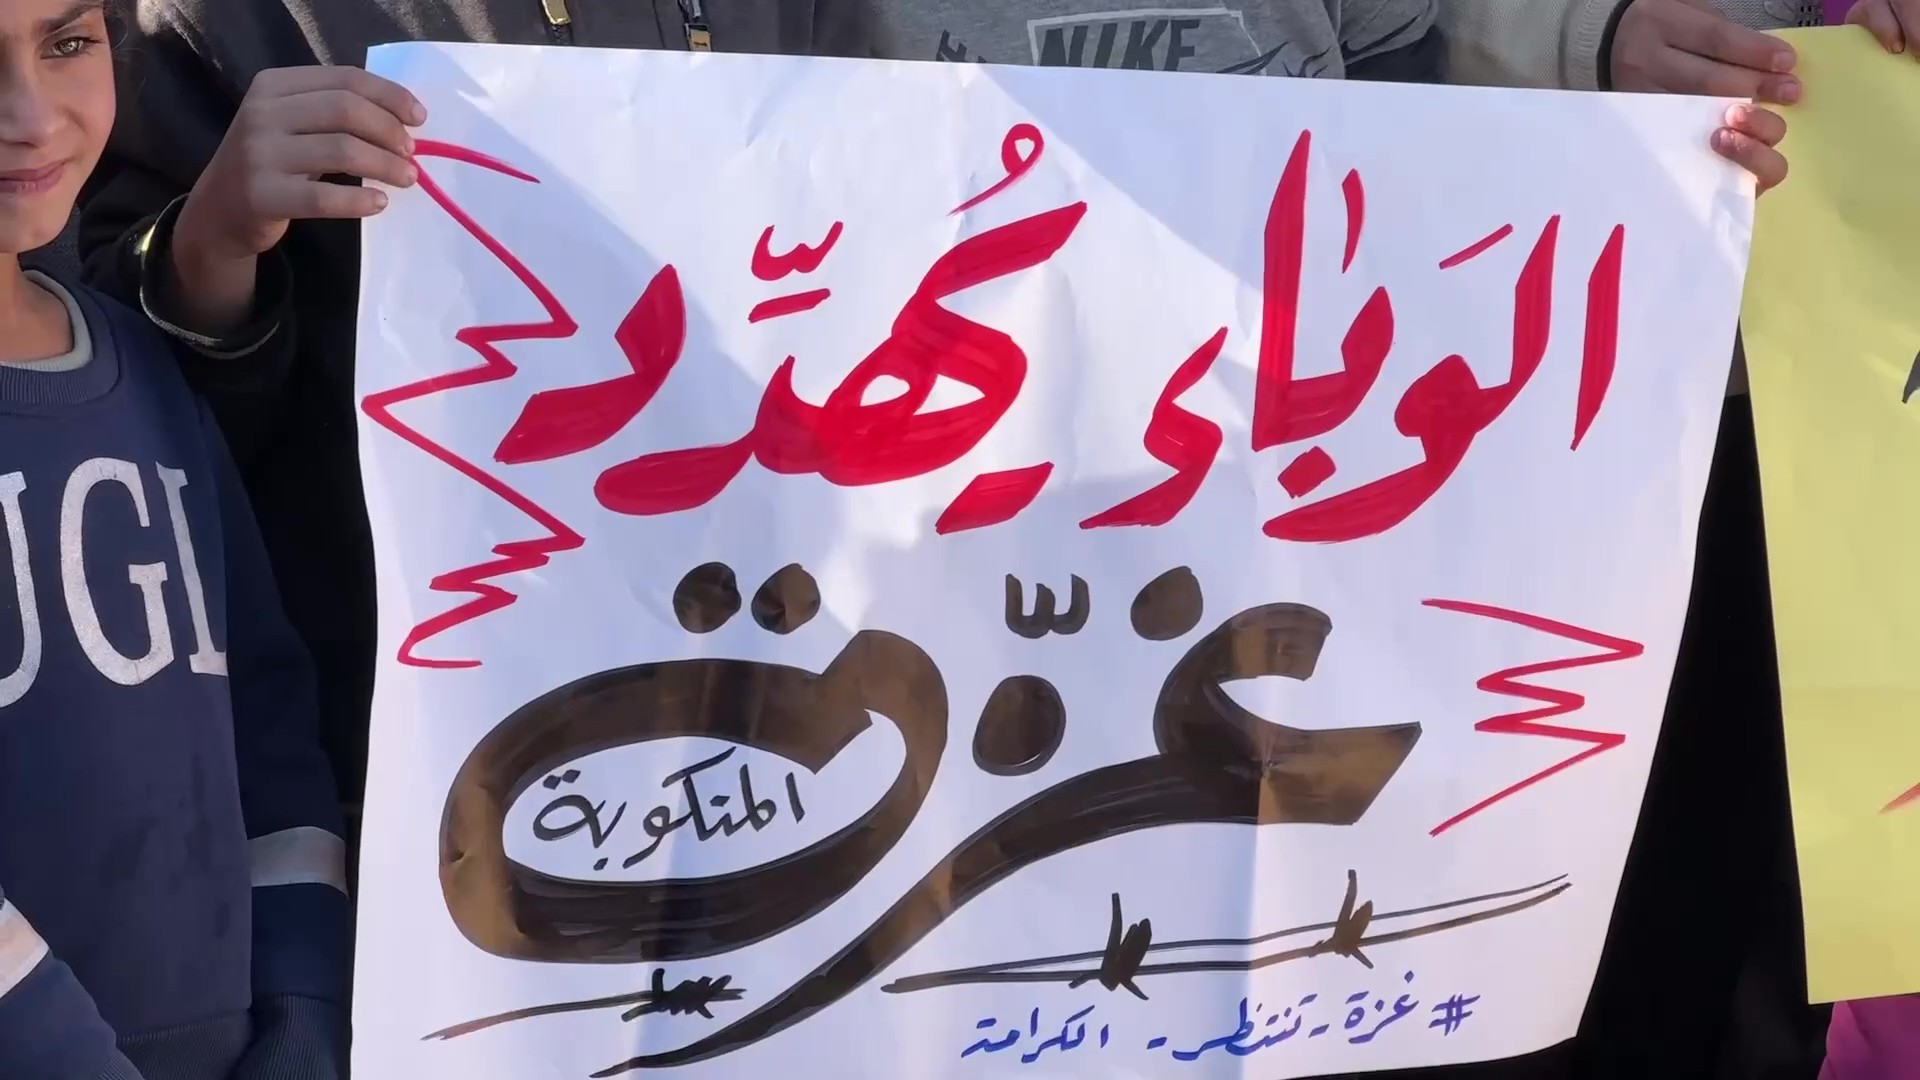 NIKE
UGL
الوَباء يُهدِّد
غزّة
المنكوبة
#غزة-تنتظر-الكرامة